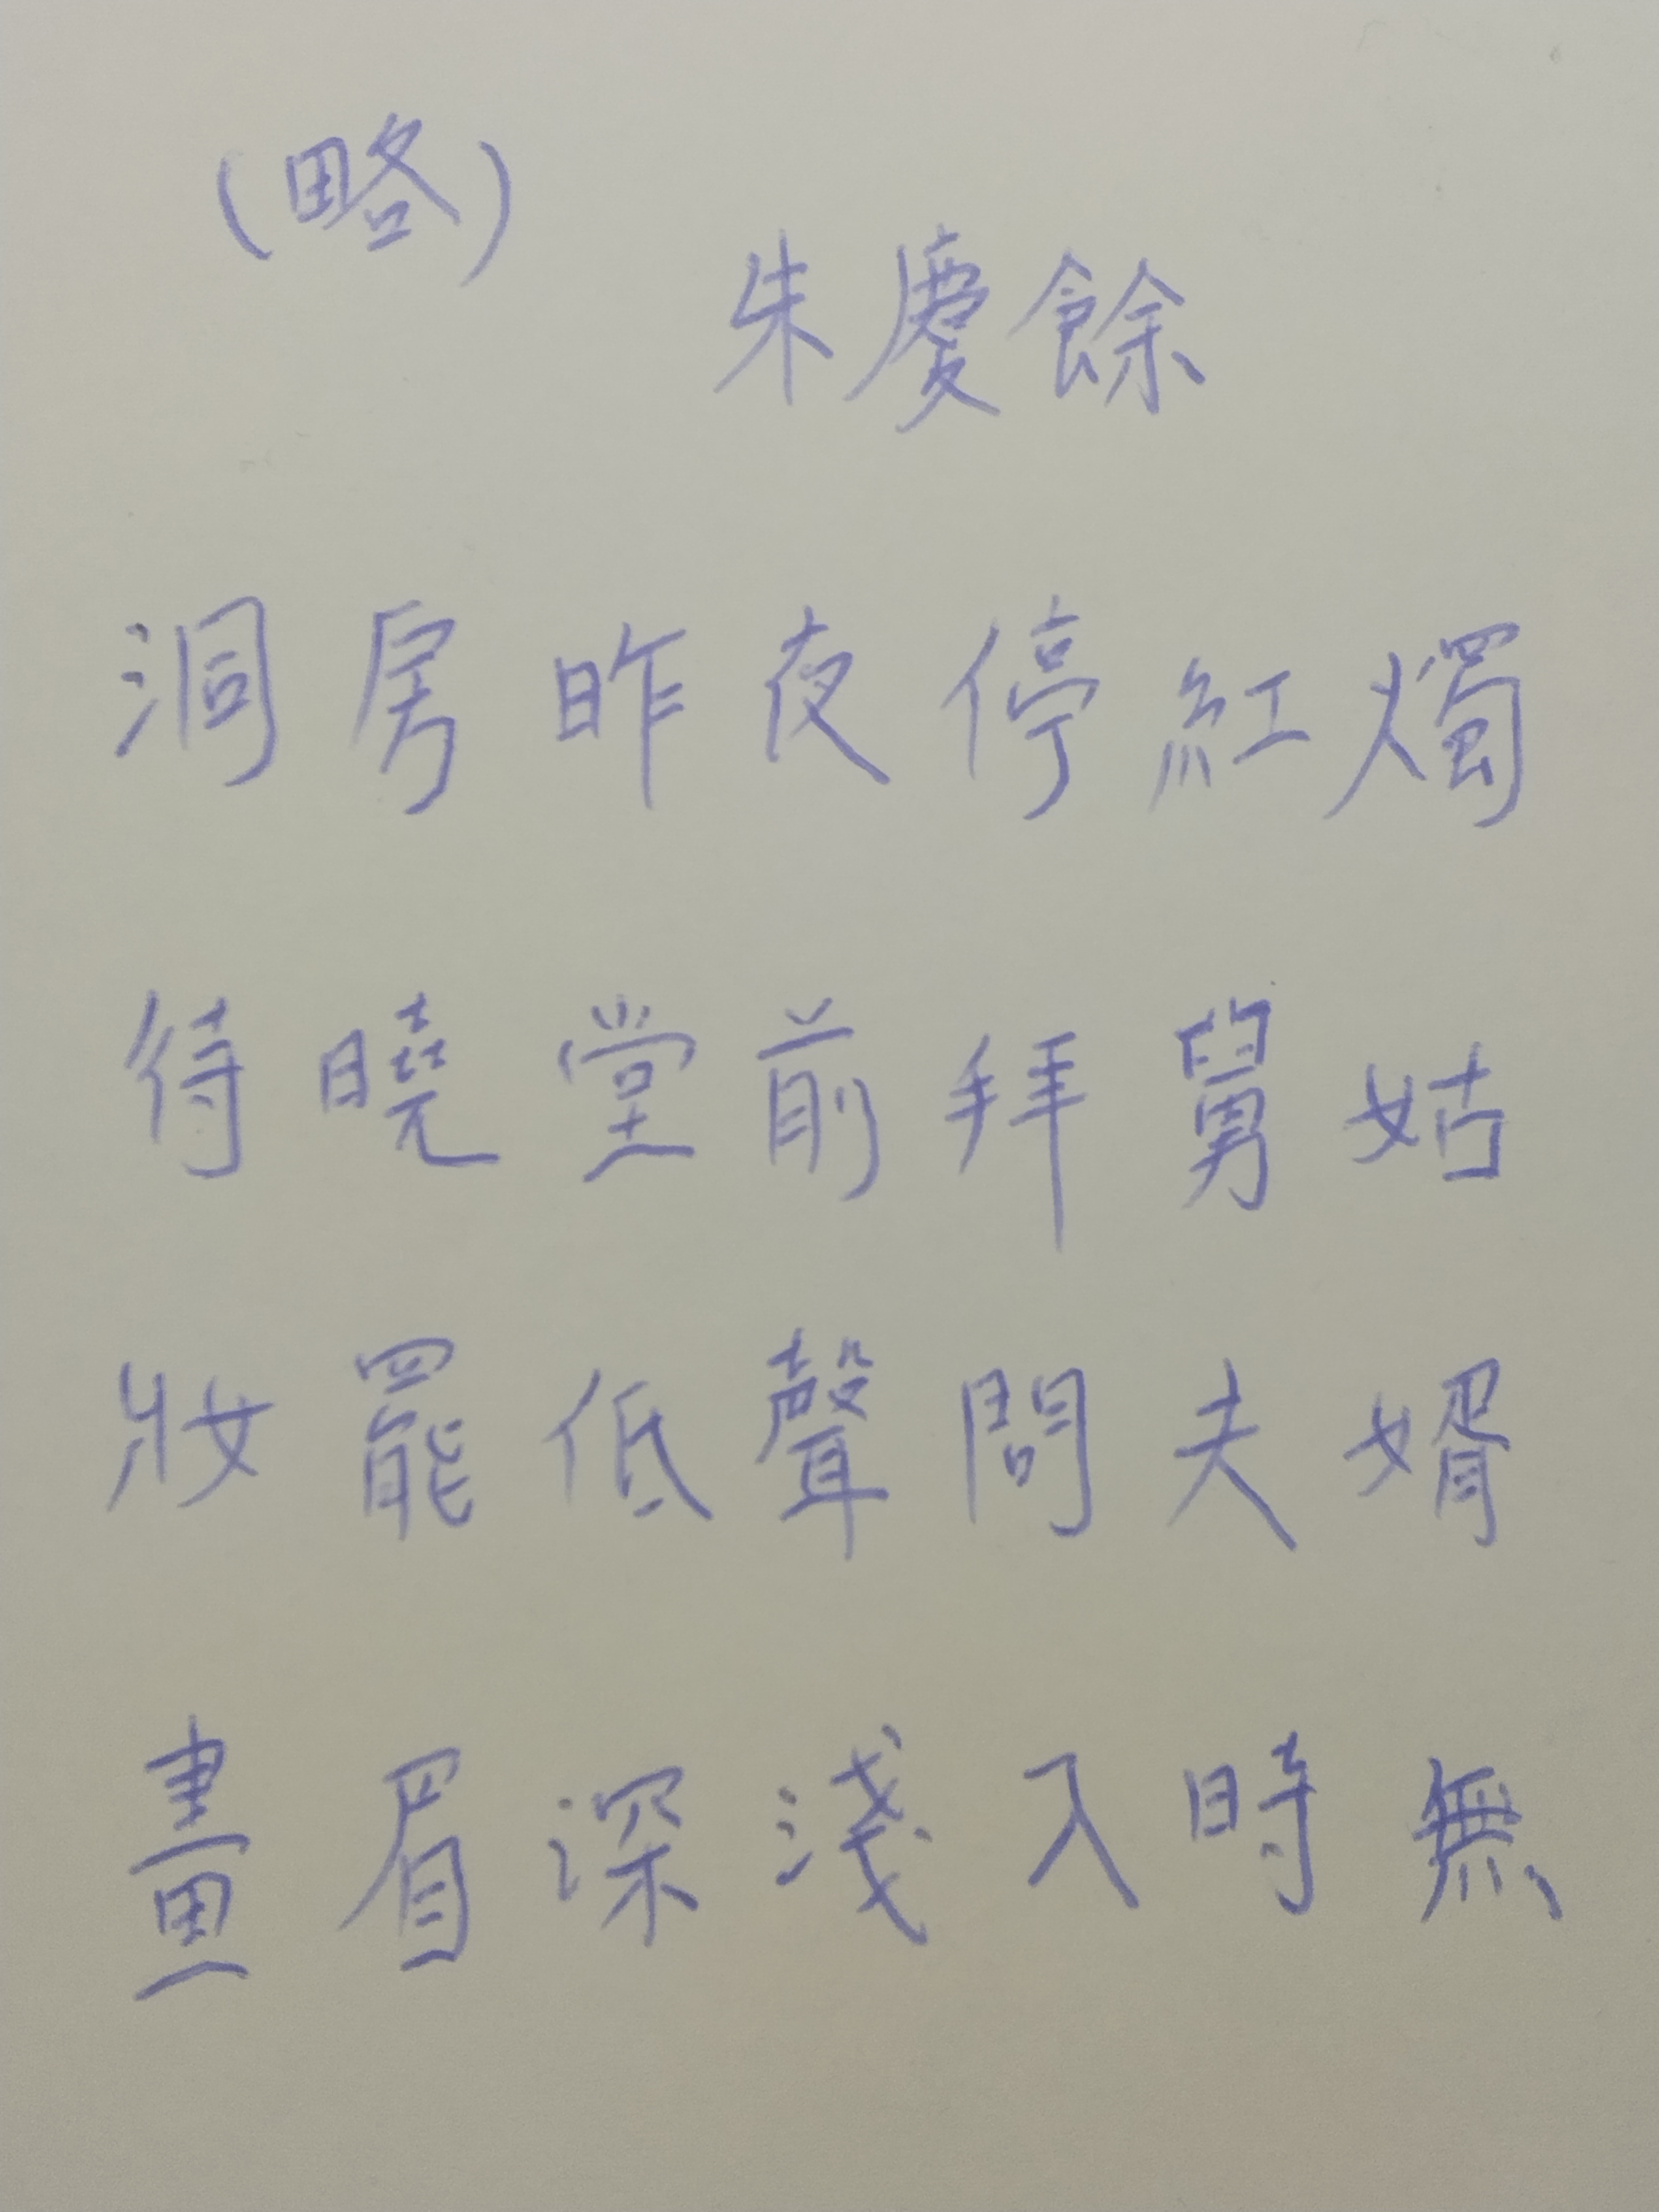 (略)
朱慶餘
洞房昨夜停紅燭
待曉堂前拜舅姑
妝罷低聲問夫婿
畫眉深淺入時無